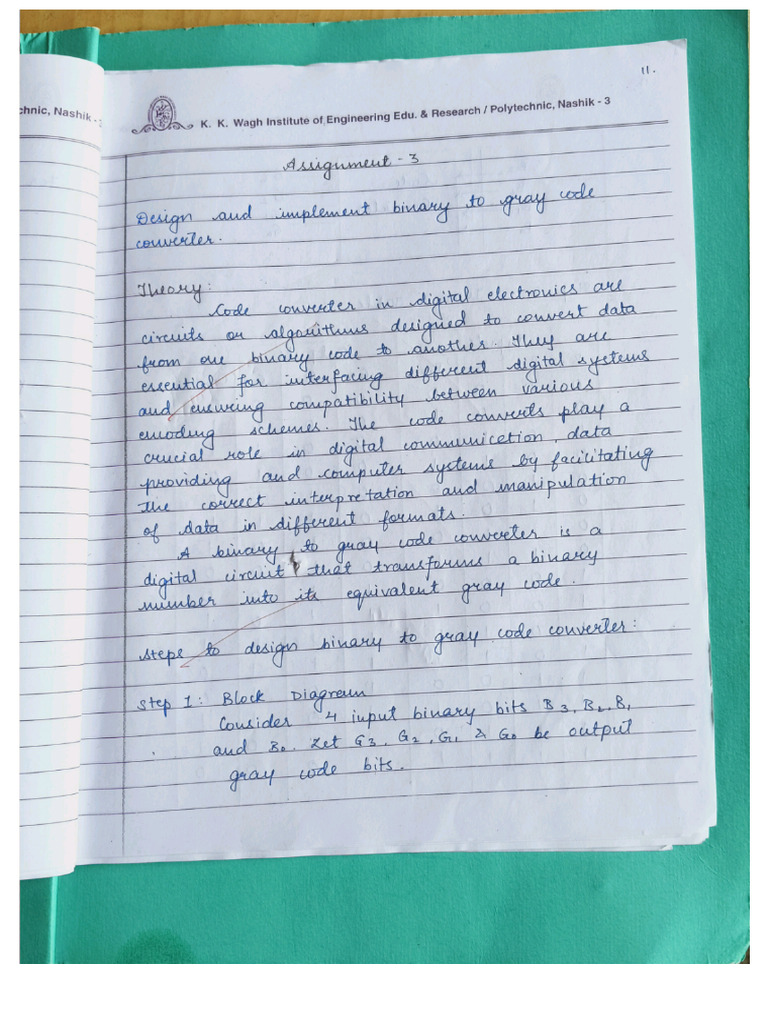 11.
chnic, Nashik - 3
K. K. Wagh Institute of Engineering Edu. & Research / Polytechnic, Nashik - 3
Assignment - 3
Design and implement binary to gray code
converter.
Theory:
Code converter in digital electronics are
circuits or algorithms designed to convert data
from one binary code to another. They are
essential for interfacing different digital systems
and ensuring compatibility between various
encoding schemes. The code converts play a
crucial role in digital communication, data
providing and computer systems by facilitating
the correct interpretation and manipulation
of data in different formats.
A binary to gray code converter is a
digital circuit that transforms a binary
number into its equivalent gray code.
Steps to design binary to gray code converter:
Step 1: Block Diagram
Consider 4 input binary bits B3, B2, B1
and B0. Let G3, G2, G1 & G0 be output
gray code bits.